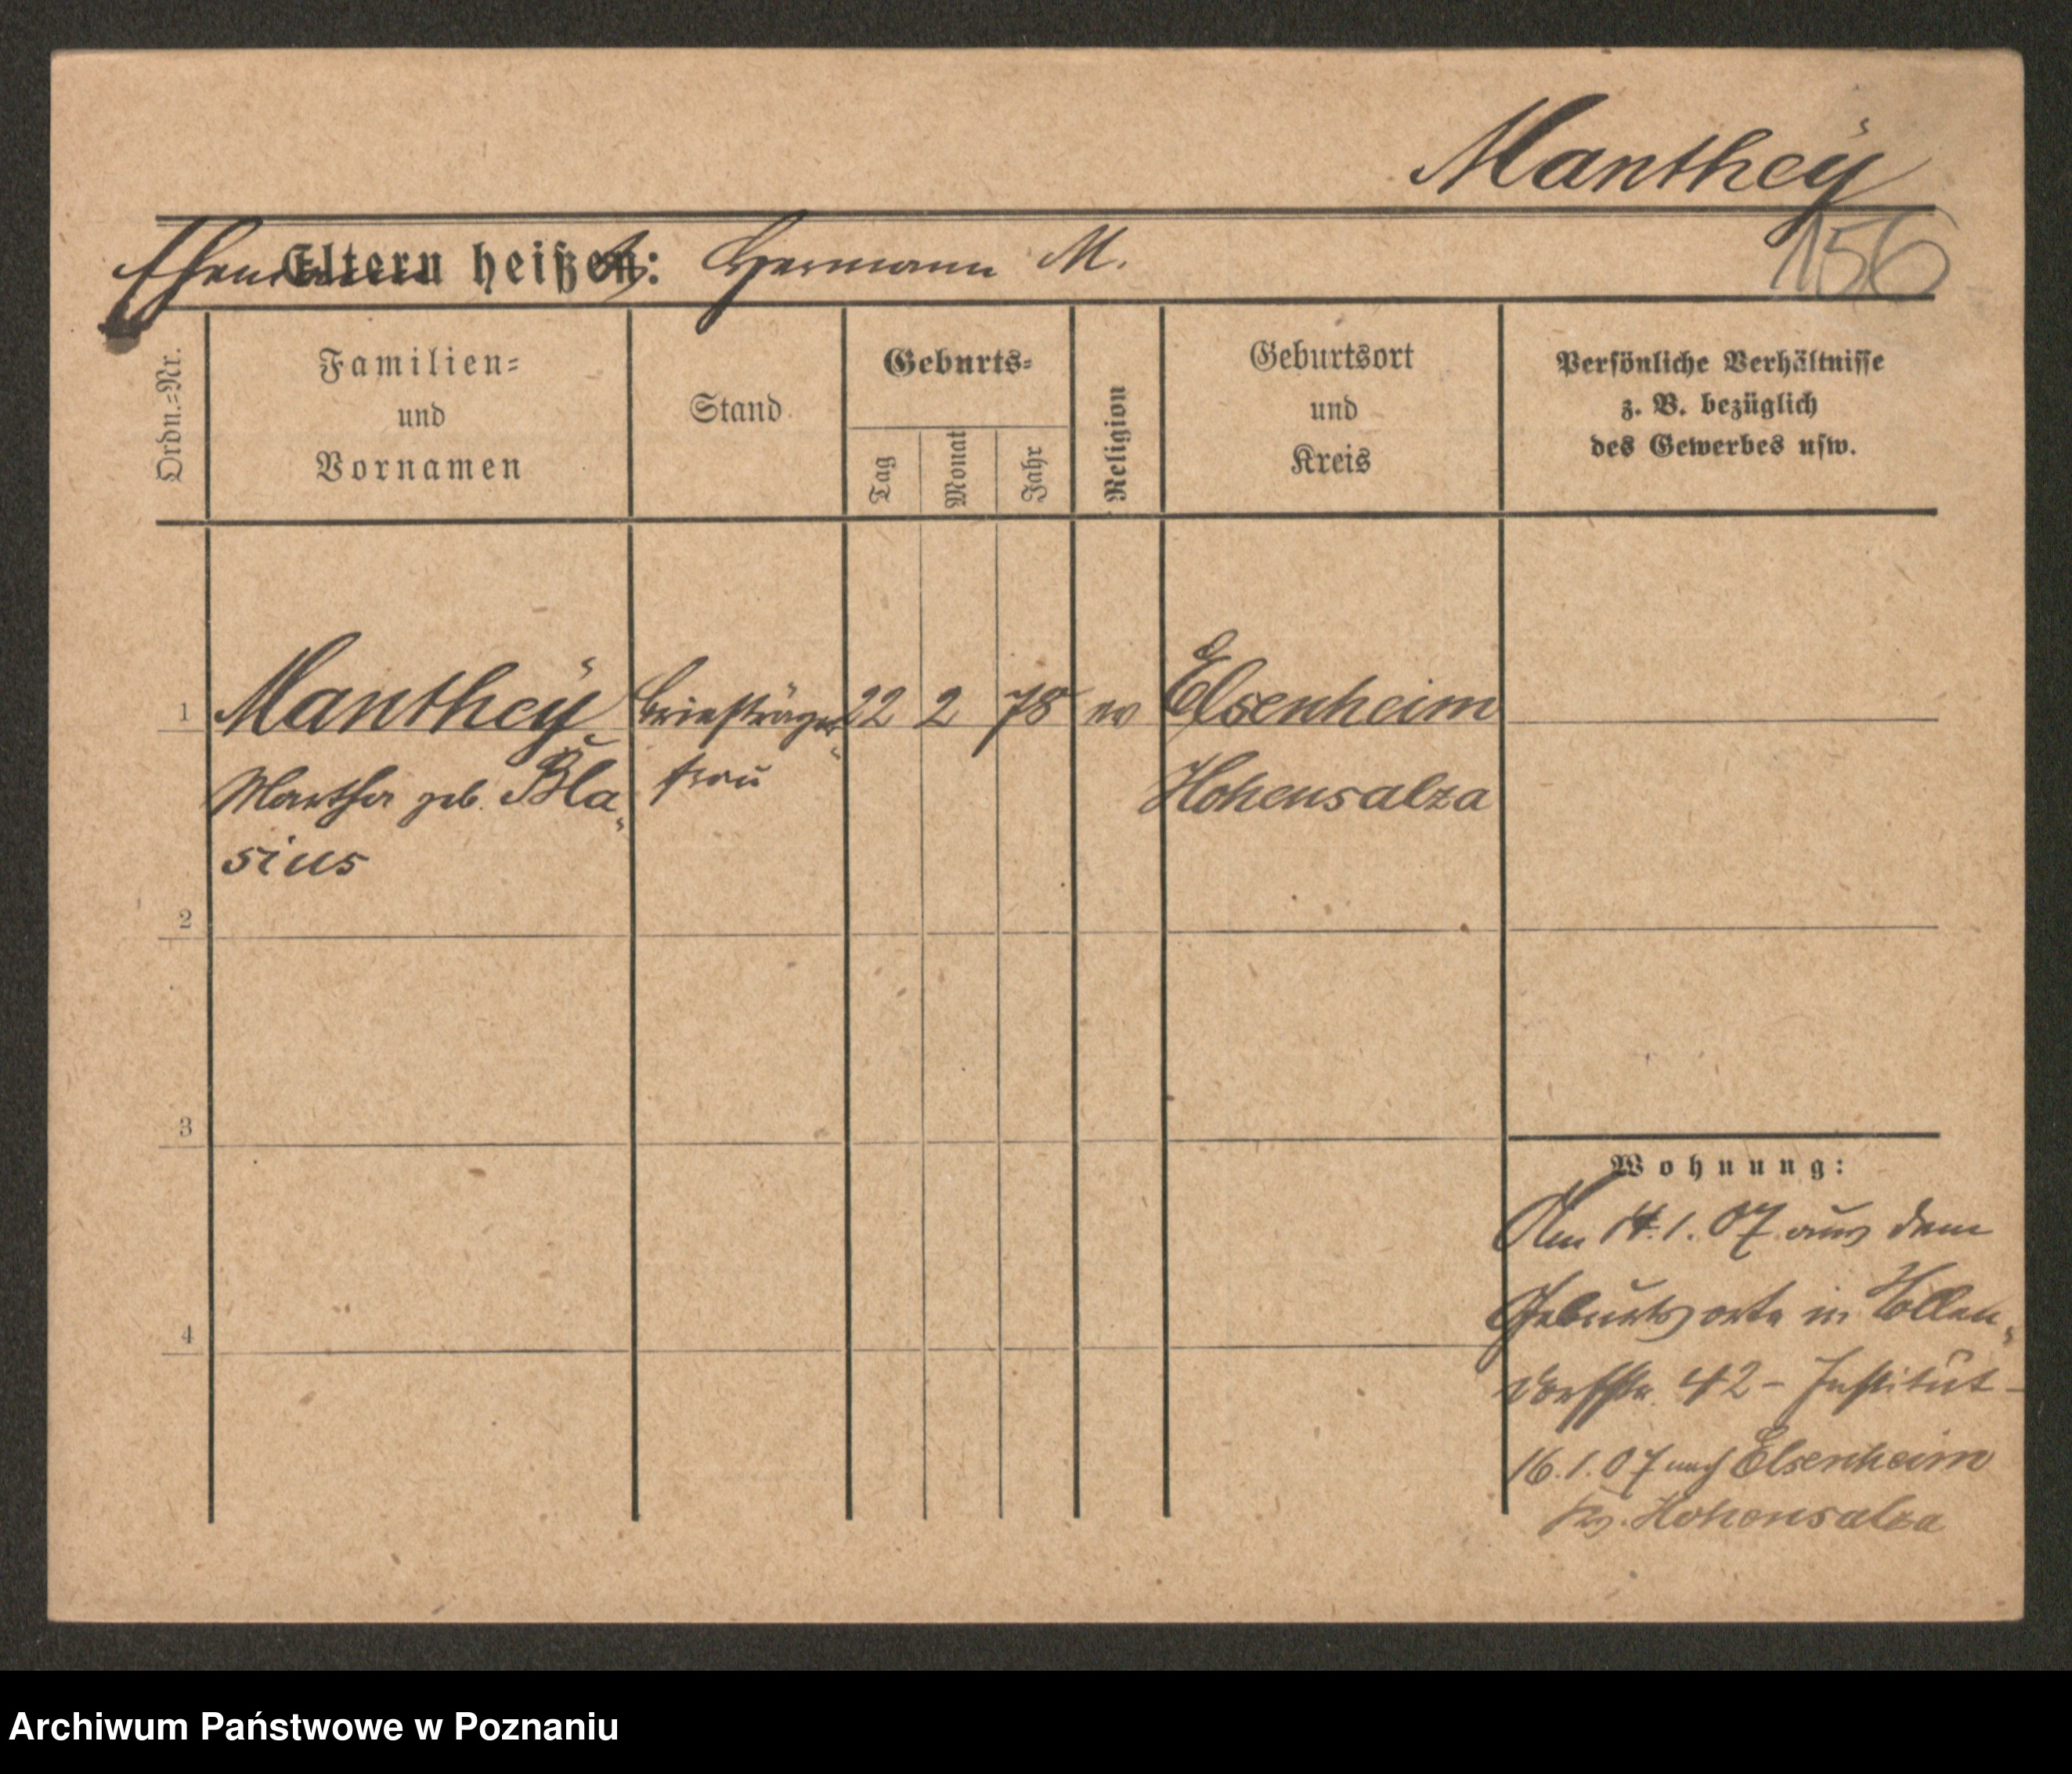 Manthey
156
Eltern heißen:
Ehemann Hermann M.
Ordn.=Nr.
Familien=
und
Vornamen
Stand
Geburts=
Tag
Monat
Jahr
Religion
Geburtsort
und
Kreis
Persönliche Verhältnisse
z. B. bezüglich
des Gewerbes usw.
1 Manthey Briefträger- 22 2 78 ev Elsenheim
Martha geb. Bla- frau Hohensalza
sius
2
3
4
Wohnung:
Am 14.1.07 aus dem
Geburtsorte in
42 - Institut -
16.1.07 nach Elsenheim
Kr. Hohensalza
Archiwum Państwowe w Poznaniu